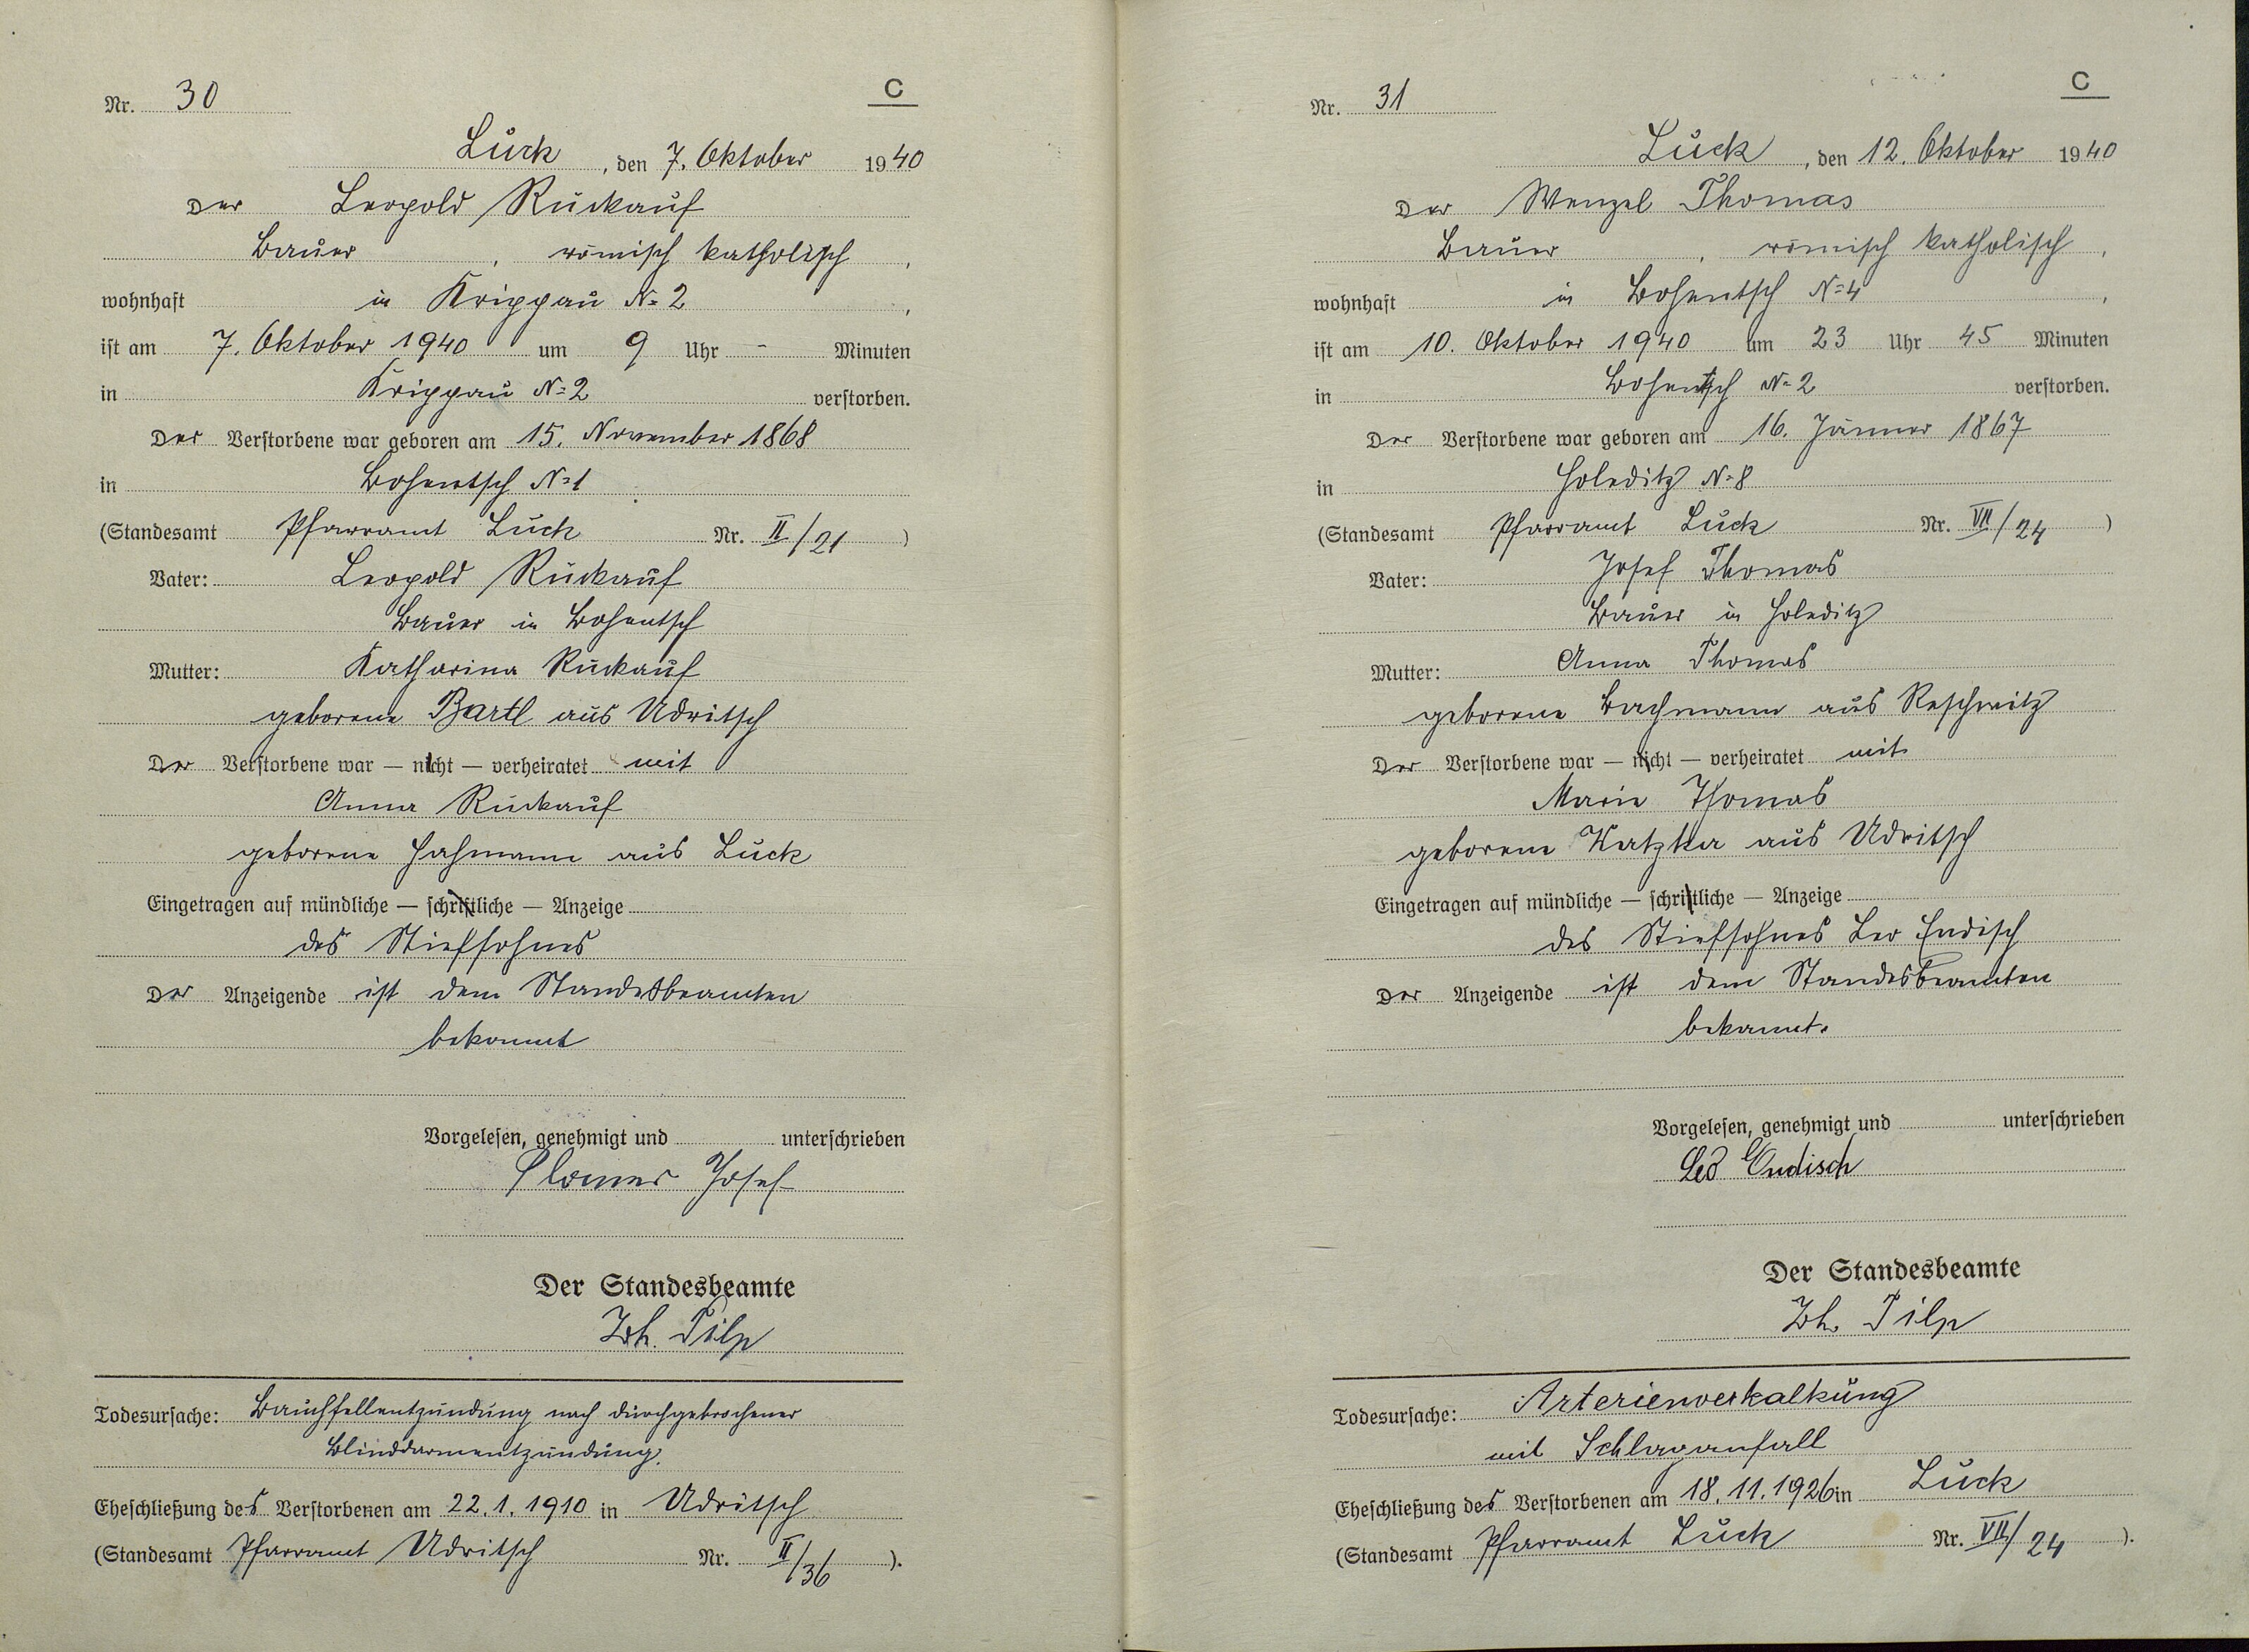 Nr. 30
C
Luck, den 7. Oktober 1940
Der Leopold Rückauf
Bauer, römisch katholisch,
wohnhaft in Krippau N=2,
ist am 7. Oktober 1940 um 9 Uhr - Minuten
in Krippau N=2 verstorben.
Der Verstorbene war geboren am 15. November 1868
in Bohentsch N=1
(Standesamt Pfarramt Luck Nr. II/21)
Vater: Leopold Rückauf
Bauer in Bohentsch
Mutter: Katharina Rückauf
geborene Bartl aus Udritsch
Der Verstorbene war — nicht — verheiratet mit
Anna Rückauf
geborene Hahmann aus Luck
Eingetragen auf mündliche — schriftliche — Anzeige
des Stiefsohnes
Der Anzeigende ist dem Standesbeamten
bekannt
Vorgelesen, genehmigt und unterschrieben
Josef
Der Standesbeamte
Tilp
Todesursache: Bauchfellentzündung nach durchgebrochener
Blinddarmentzündung.
Eheschließung des Verstorbenen am 22.1.1910 in Udritsch
(Standesamt Pfarramt Udritsch Nr. II/36).
Nr. 31
C
Luck, den 12. Oktober 1940
Der Wenzel Thomas
Bauer, römisch katholisch,
wohnhaft in Bohentsch N=4,
ist am 10. Oktober 1940 um 23 Uhr 45 Minuten
in Bohentsch N=2 verstorben.
Der Verstorbene war geboren am 16. Jänner 1867
in Holeditz N=8
(Standesamt Pfarramt Luck Nr. VII/24)
Vater: Josef Thomas
Bauer in Holeditz
Mutter: Anna Thomas
geborene Bachmann aus Reschwitz
Der Verstorbene war — nicht — verheiratet mit
Marie Thomas
geborene Katzka aus Udritsch
Eingetragen auf mündliche — schriftliche — Anzeige
des Stiefsohnes Leo Endisch
Der Anzeigende ist dem Standesbeamten
bekannt.
Vorgelesen, genehmigt und unterschrieben
Leo Endisch
Der Standesbeamte
Tilp
Todesursache: Arterienverkalkung
mit Schlaganfall
Eheschließung des Verstorbenen am 18.11.1926 in Luck
(Standesamt Pfarramt Luck Nr. VII/24).